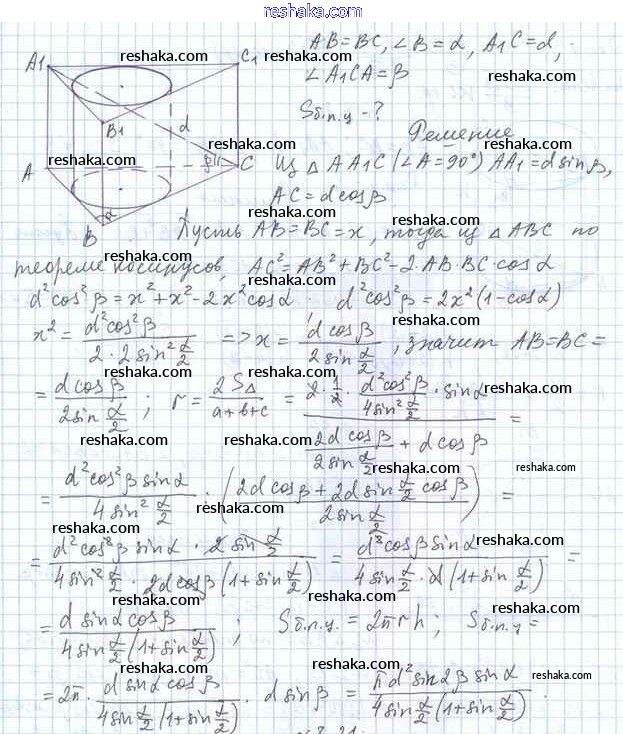 reshaka.com
AB=BC, ∠B=α, A₁C=d,
∠A₁CA=β
Sб.п.ц - ?
Решение
Из △AA₁C (∠A=90°) AA₁=d sinβ,
AC=d cosβ
Пусть AB=BC=x, тогда из △ABC по
теореме косинусов, AC²=AB²+BC²-2·AB·BC·cosα
d²cos²β=x²+x²-2x²cosα d²cos²β=2x²(1-cosα)
x²=d²cos²β/(2·2sin²α/2) => x=d cosβ/(2sin α/2), значит AB=BC=
=d cosβ/(2sin α/2); r=2S△/(a+b+c)=(2·1/2·d²cos²β/(4sin²α/2)·sinα)/(2d cosβ/(2sin α/2)+d cosβ)=
=d²cos²β sinα/(4sin²α/2):((2d cosβ+2d sin α/2 cosβ)/(2sin α/2))=
=d²cos²β sinα·2sin α/2/(4sin²α/2·2d cosβ(1+sin α/2))=d²cosβ sinα/(4sin α/2·d(1+sin α/2))=
=d sinα cosβ/(4sin α/2(1+sin α/2)); Sб.п.ц.=2πrh; Sб.п.ц=
=2π·d sinα cosβ/(4sin α/2(1+sin α/2))·d sinβ=πd²sin2β sinα/(4sin α/2(1+sin α/2)).
A1
C1
B1
d
A
β
C
α
B
reshaka.com